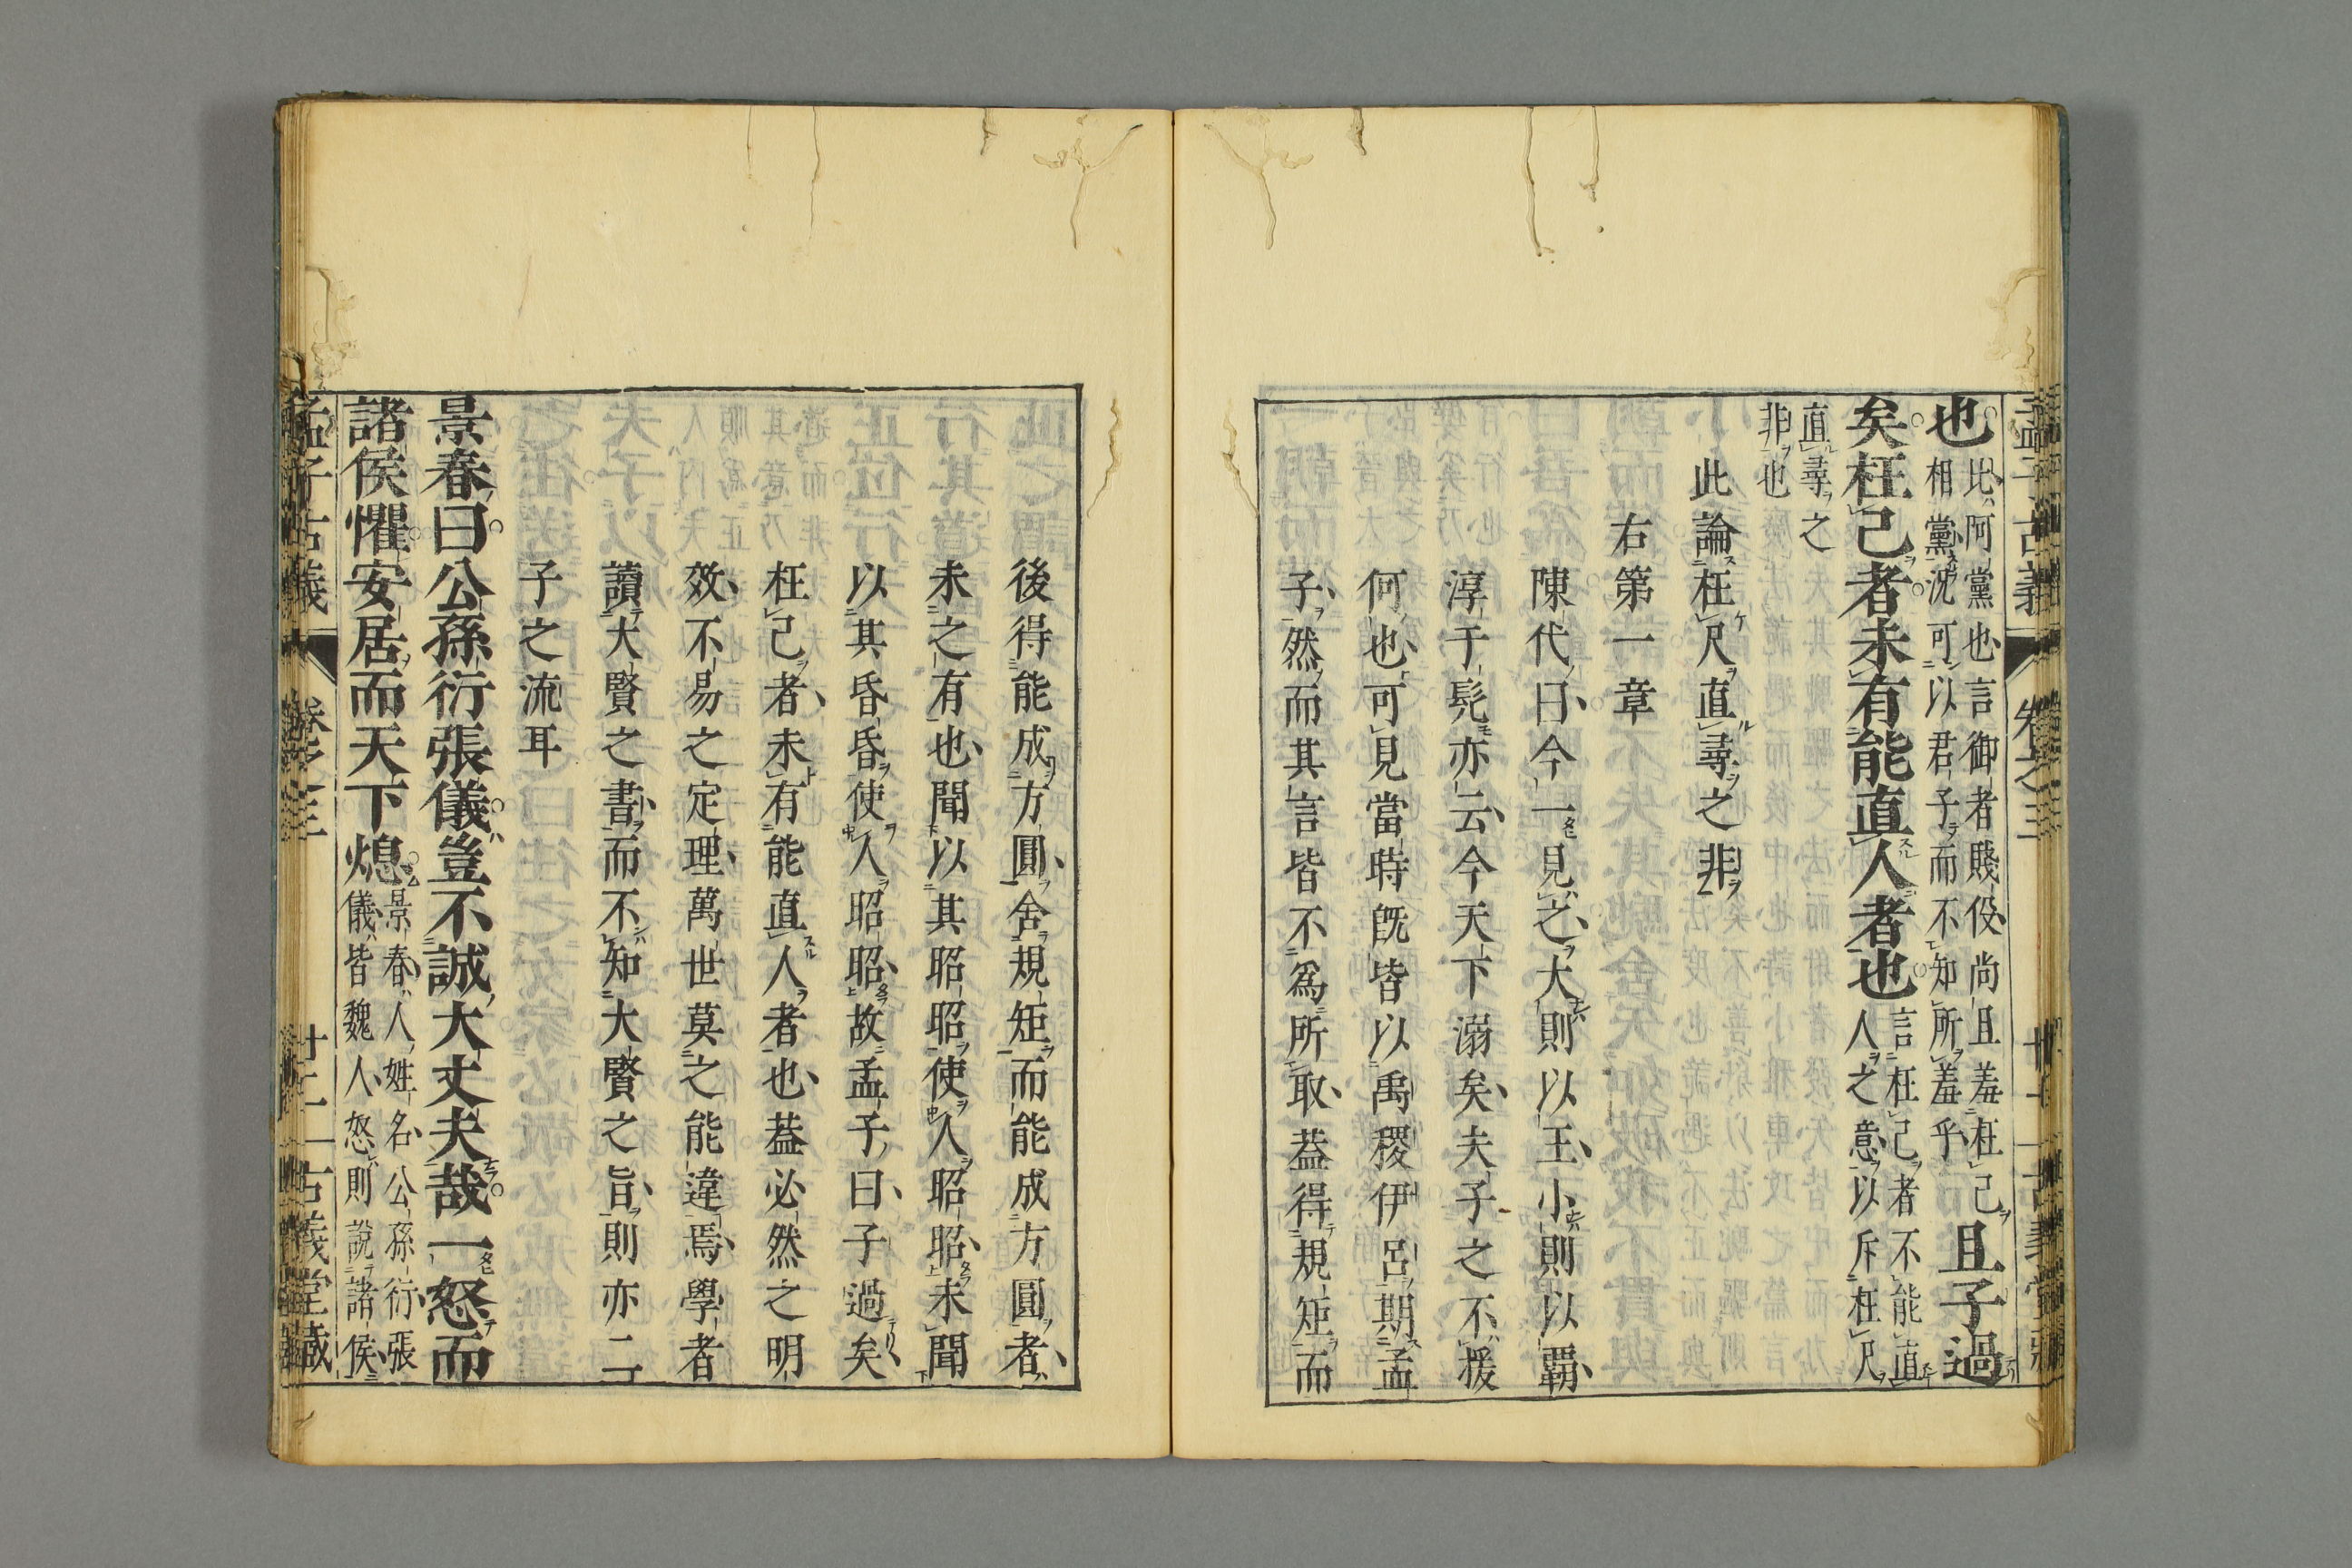 孟子古義 卷之三 古義堂藏
也 比阿黨也言御者賤役尚且羞枉己
相黨況可以君子而不知所羞乎 且子過
矣枉己者未有能直人者也 言枉己者不能直
人之意以斥枉尺
直尋之
非也
此論枉尺直尋之非
右第一章
陳代曰今一見之大則以王小則以霸
淳于髡亦云今天下溺矣夫子之不援
何也可見當時既皆以禹稷伊呂期孟
子然而其言皆不爲所取葢得規矩而
後得能成方圓舍規矩而能成方圓者
未之有也聞以其昭昭使人昭昭未聞
以其昏昏使人昭昭故孟子曰子過矣
枉己者未有能直人者也葢必然之明
效不易之定理萬世莫之能違焉學者
讀大賢之書而不知大賢之旨則亦二
子之流耳
景春曰公孫衍張儀豈不誠大丈夫哉一怒而
諸侯懼安居而天下熄 景春人姓名公孫衍張
儀皆魏人怒則說諸侯
孟子古義 卷之三 廿二 古義堂藏